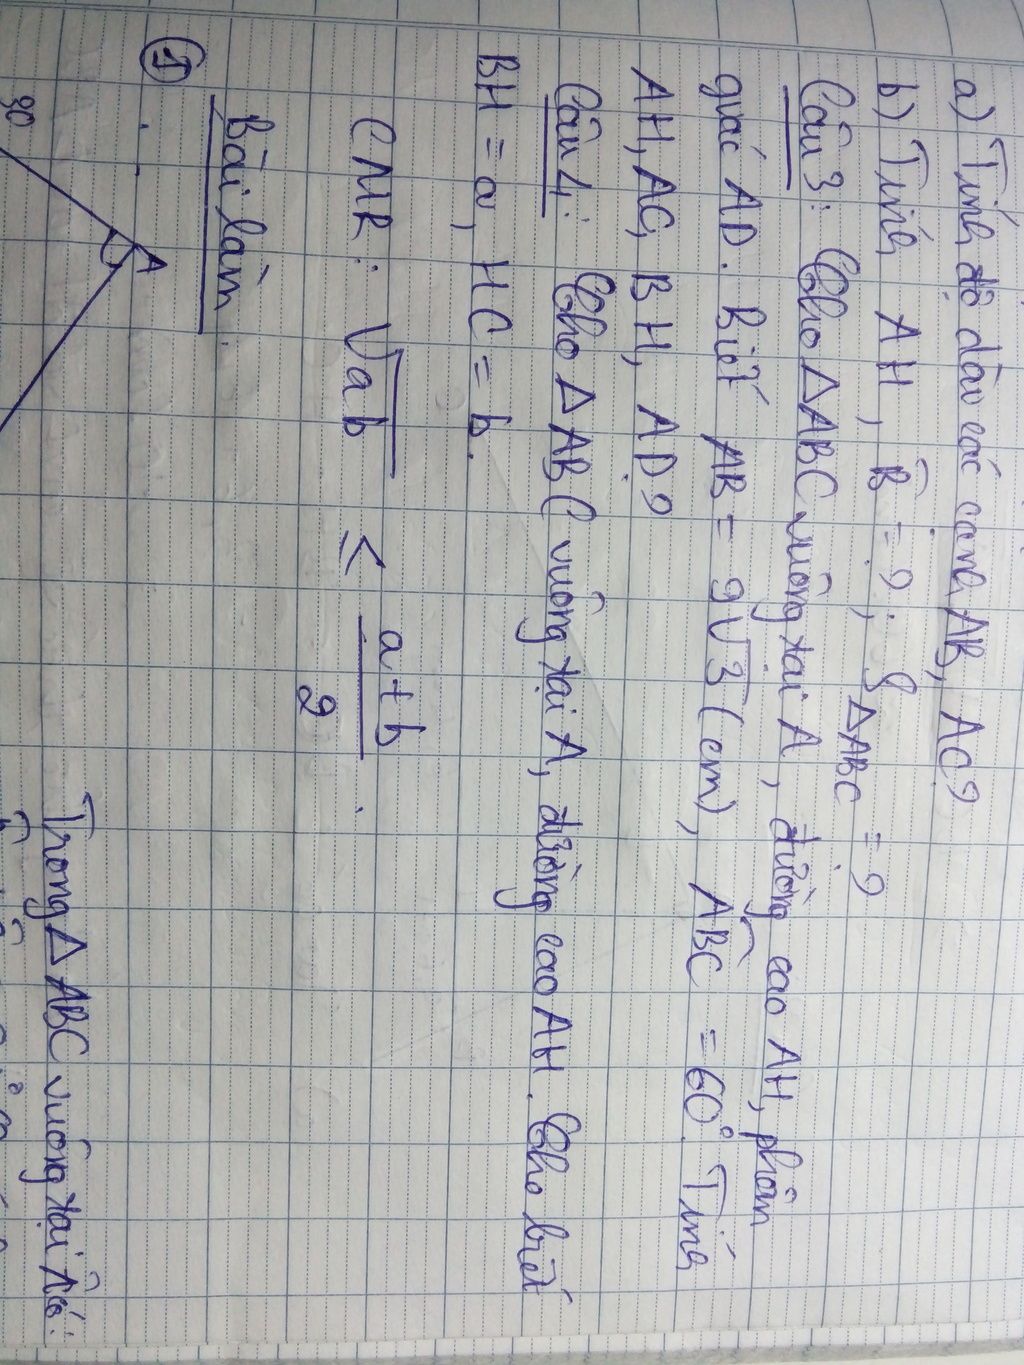 a) Tính độ dài các cạnh AB, AC?
b) Tính AH, B̂ = ?; S△ABC = ?
Câu 3: Cho △ABC vuông tại A, đường cao AH, phân
giác AD. Biết AB = 9√3 (cm), ABC = 60°. Tính
AH, AC, BH, AD?
Câu 4: Cho △ABC vuông tại A, đường cao AH. Cho biết
BH = a, HC = b.
CMR: √ab ≤ a+b/2.
Bài làm.
①
A
30
Trong △ABC vuông tại A có: